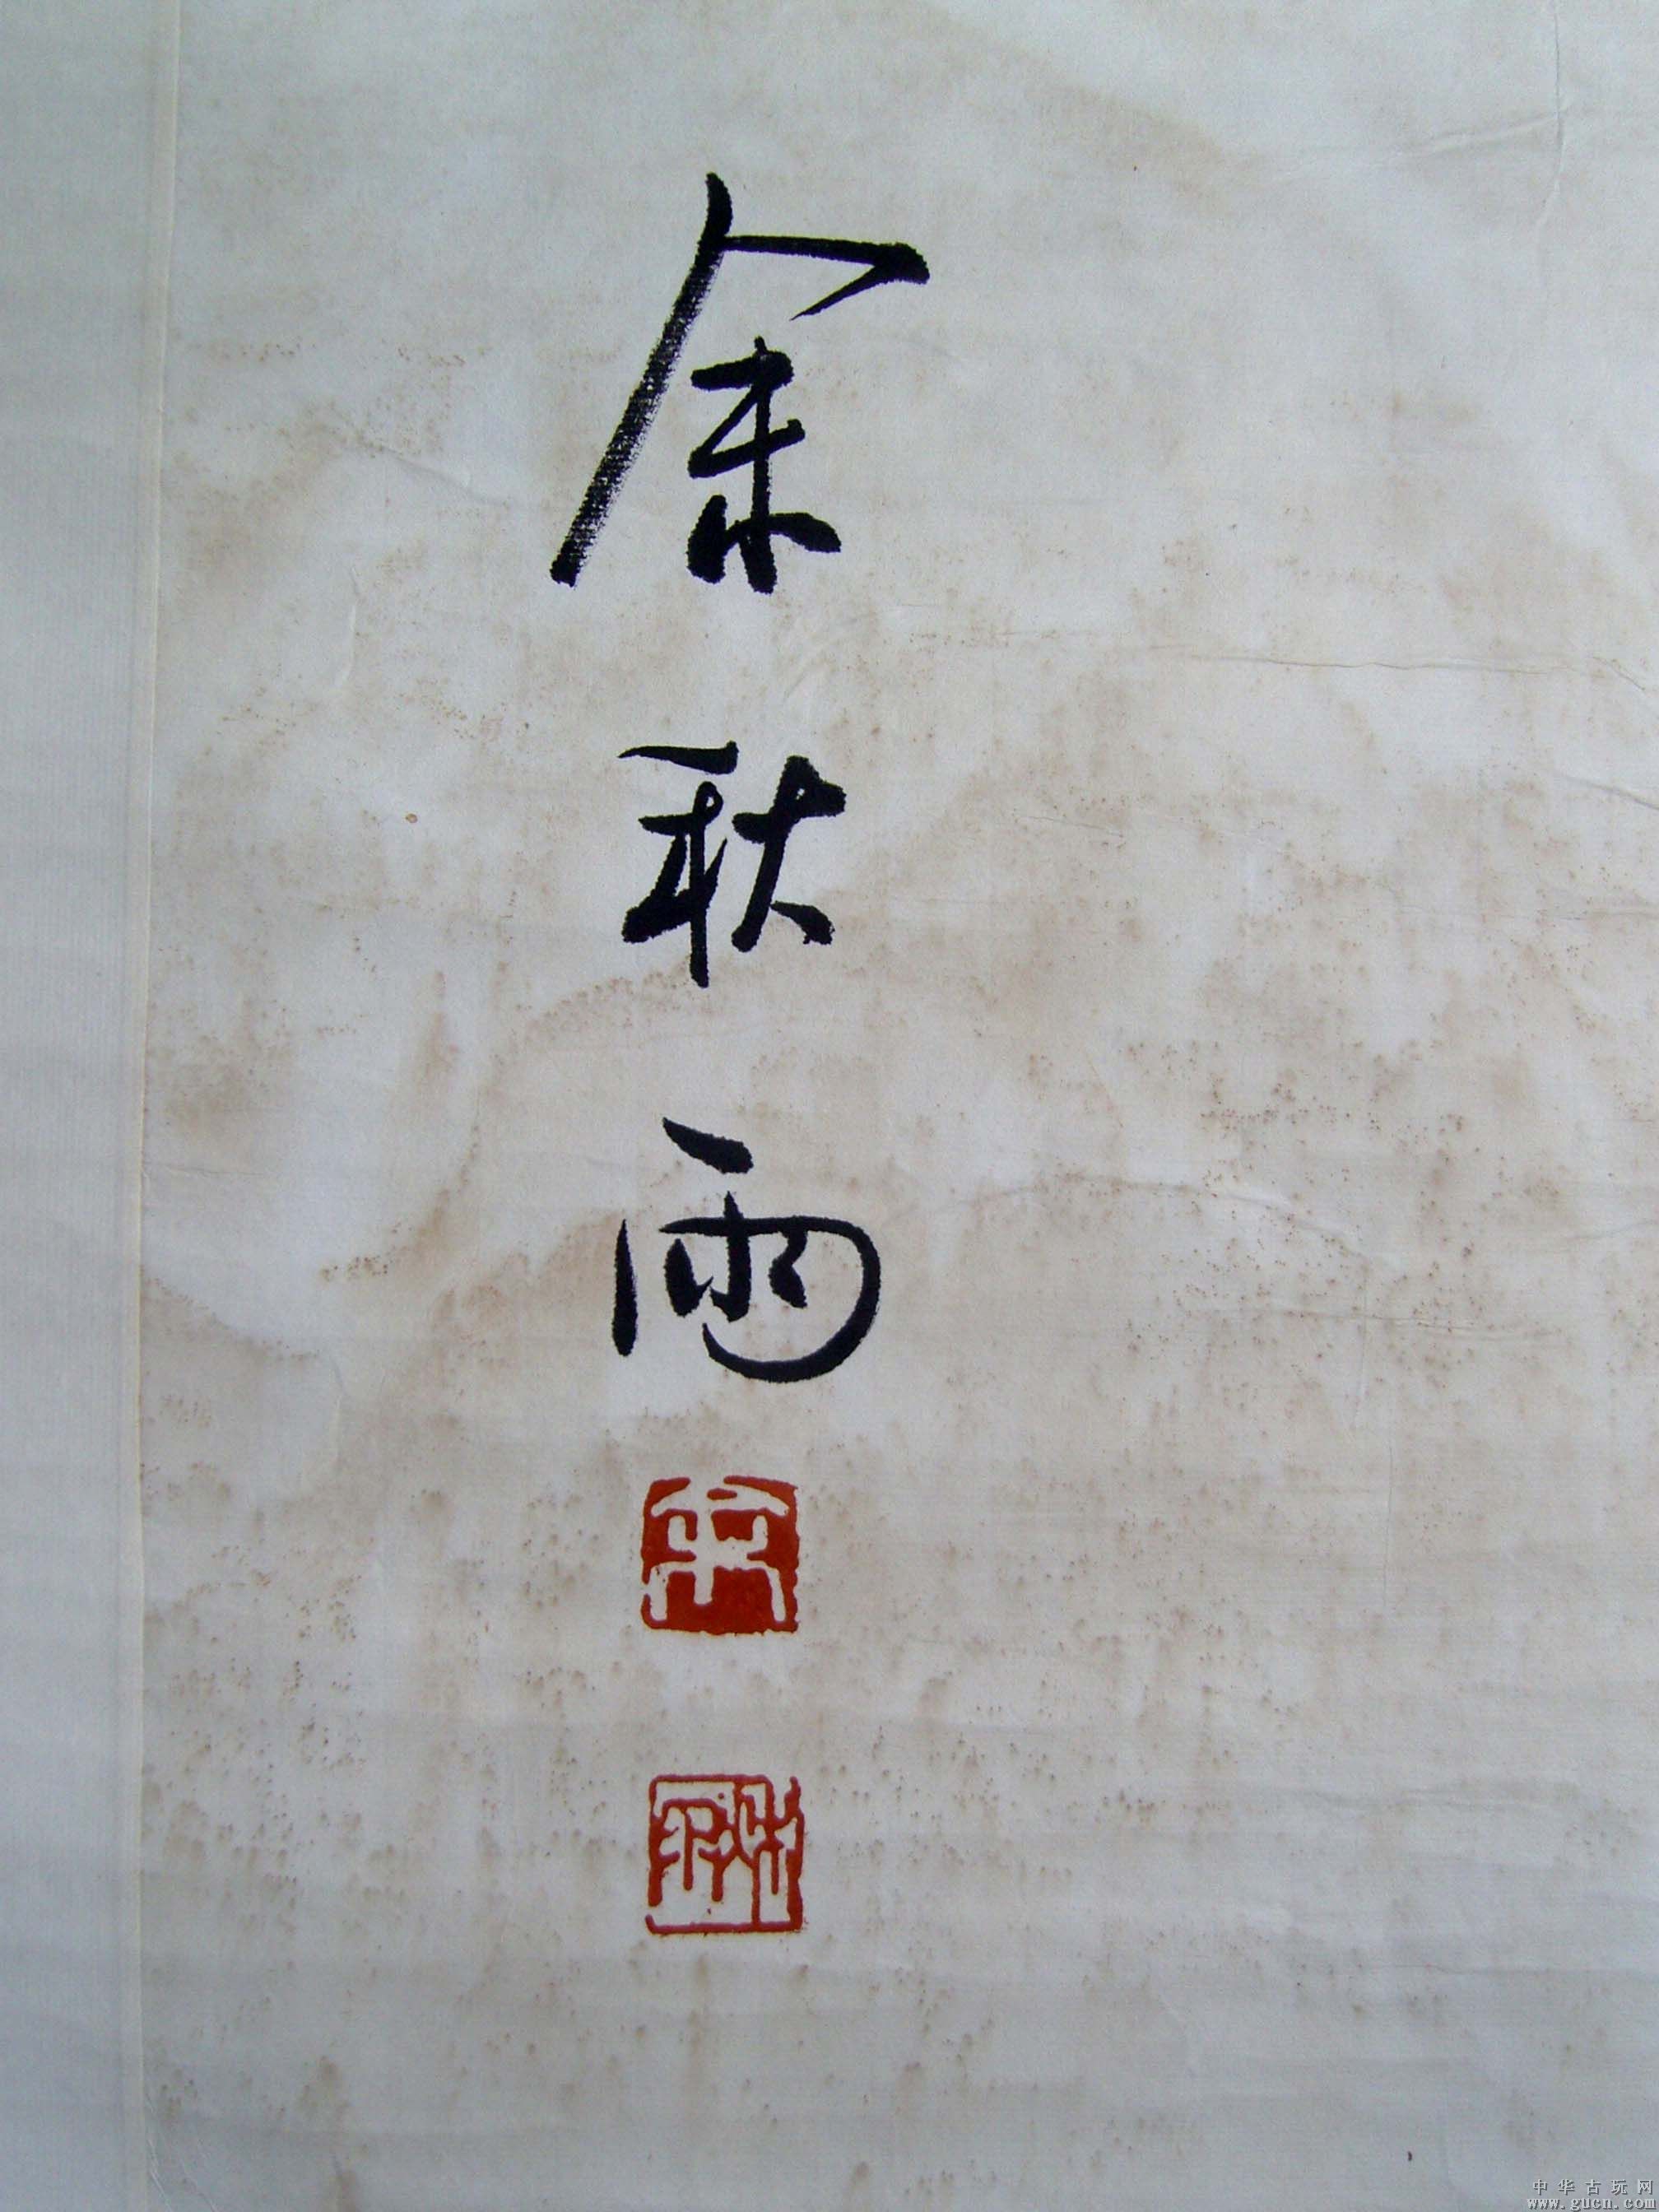 余秋雨
余
秋雨
中华古玩网
www.gucn.com